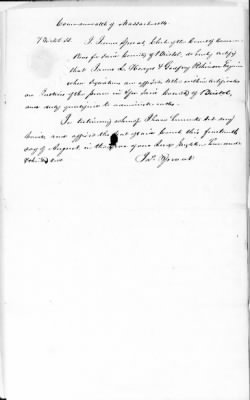 Commonwealth of Massachusetts
Bristol ss. I James Sproat, Clerk of the Court of Common
Pleas for said County of Bristol, do hereby certify
that James L. Hodges & Godfrey Robinson Esquires
whose signatures are affixed to the within certificate
are Justices of the peace in & for said County of Bristol,
and duly qualified to administer oaths.
In testimony whereof I have hereunto set my
hand and affixed the seal of said Court this fourteenth
day of August in the year of our Lord eighteen hundred
and
Jas Sproat